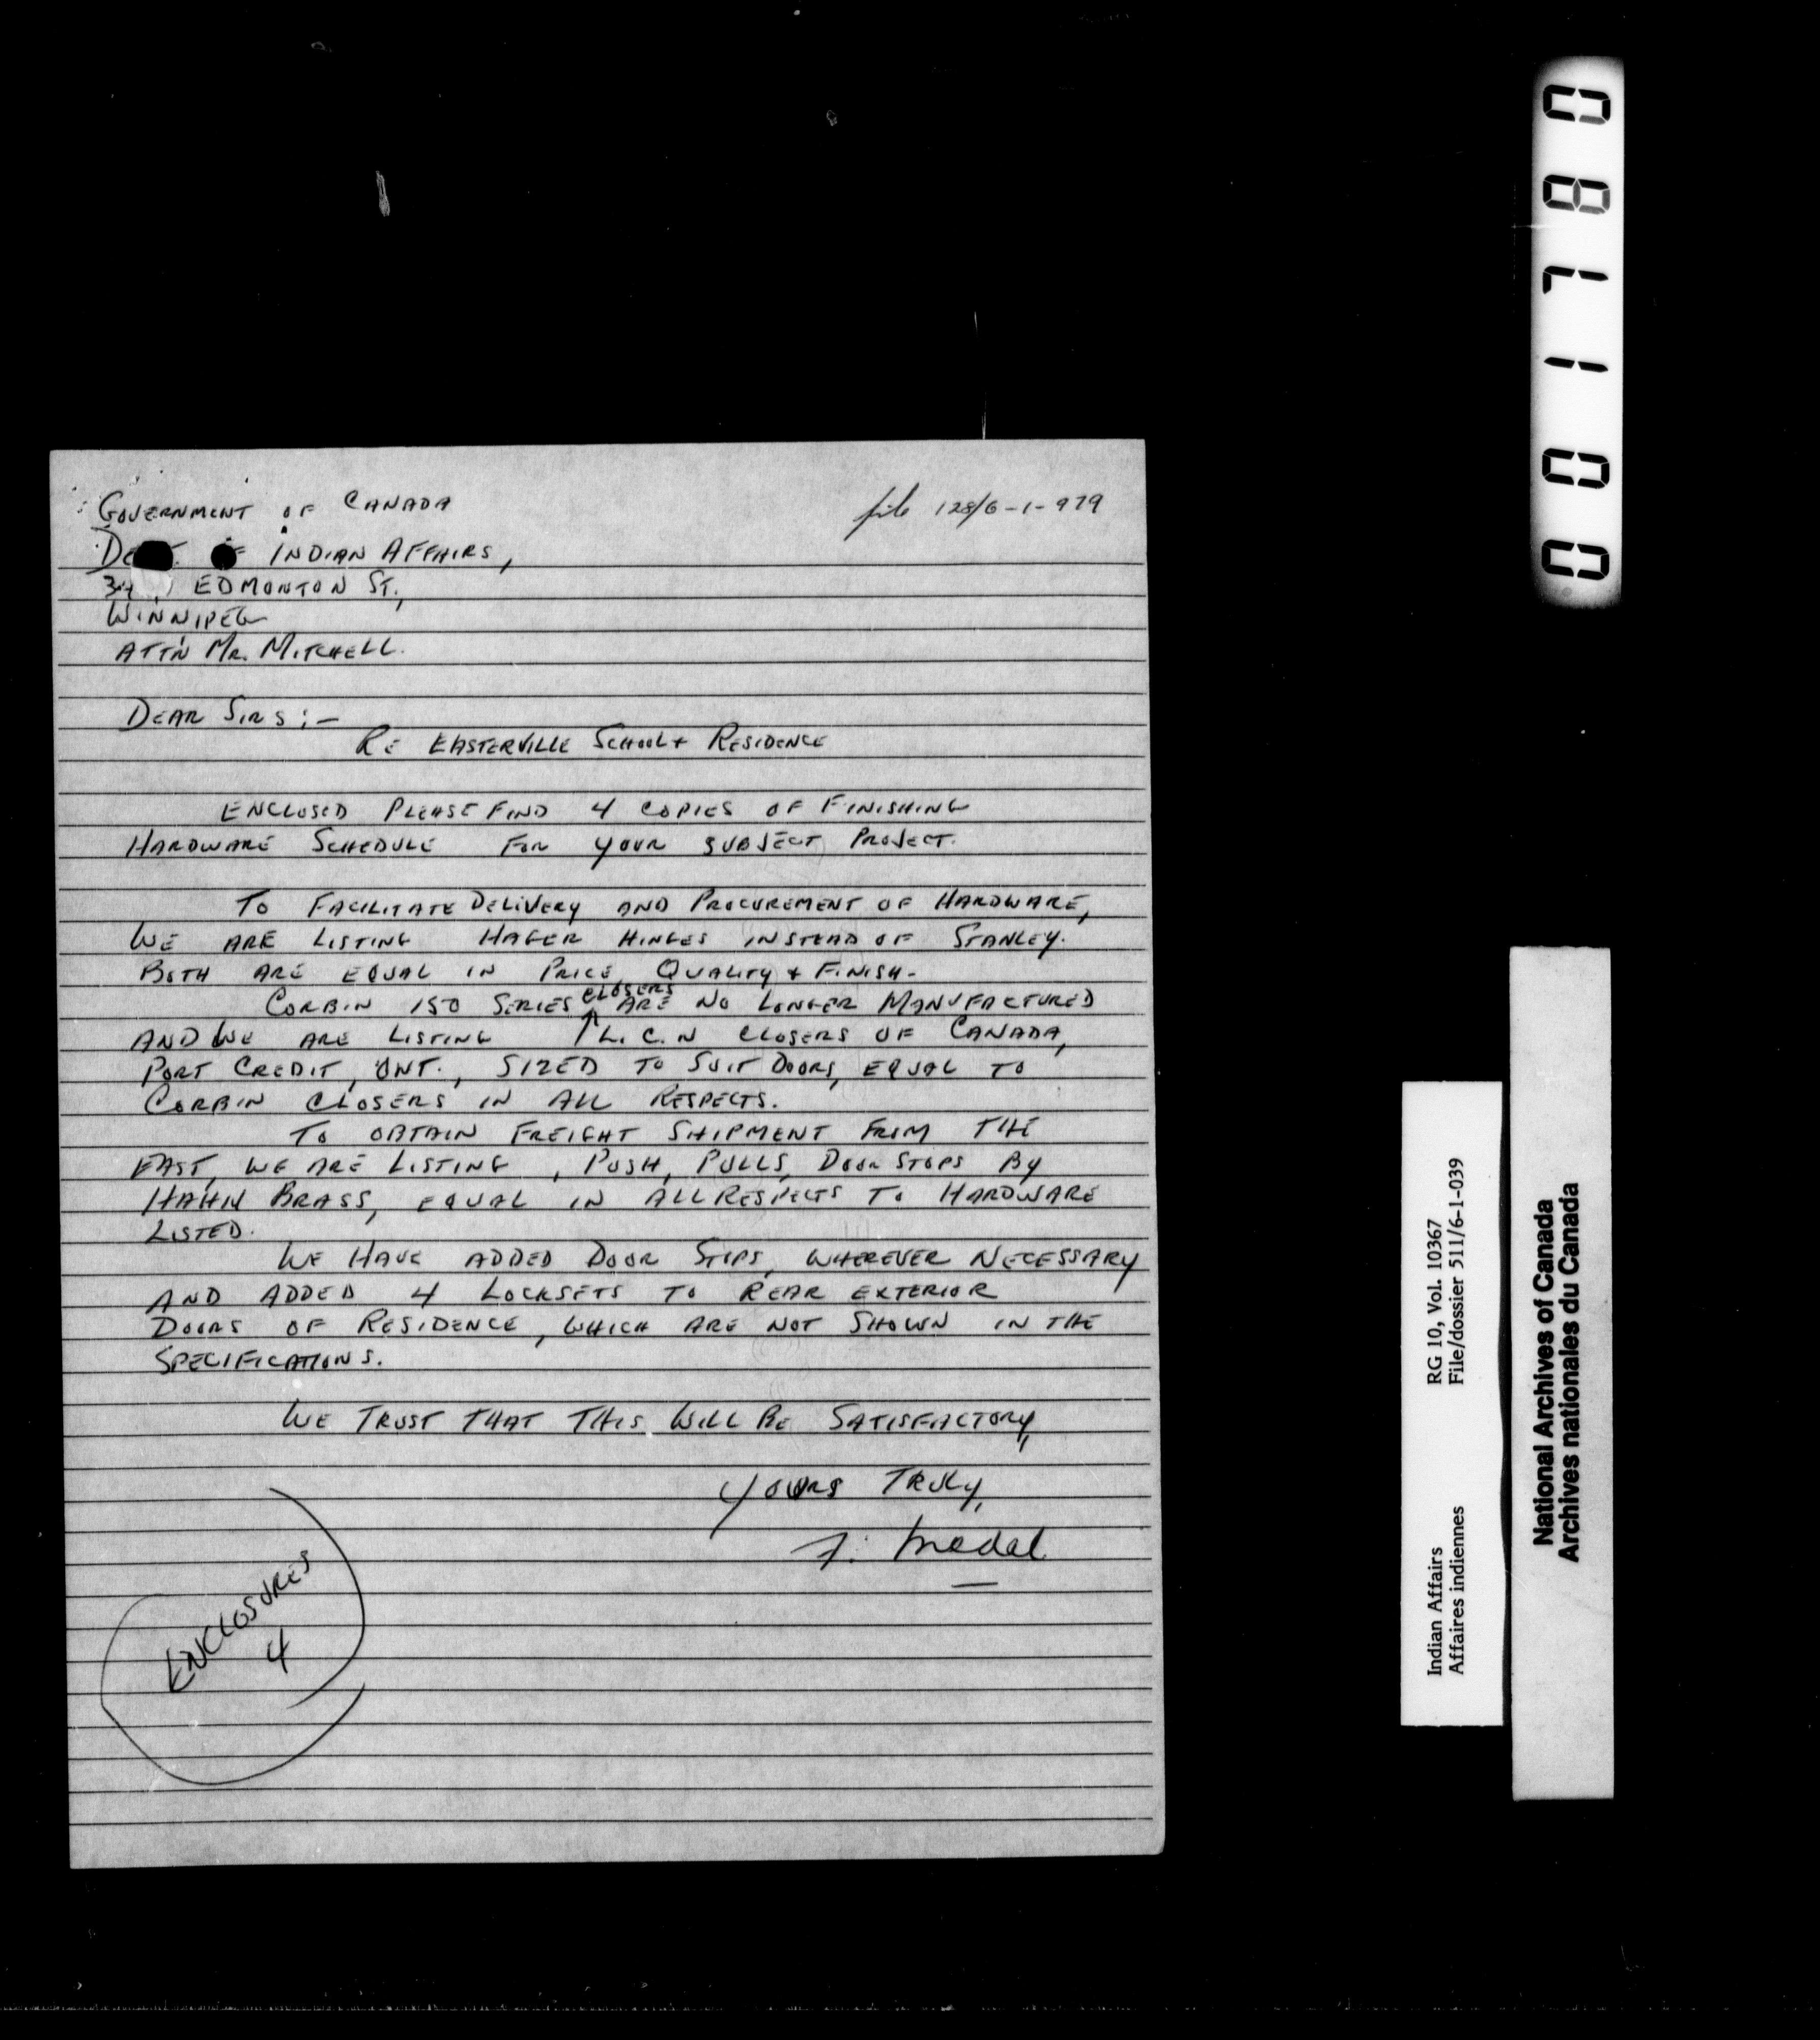 GOVERNMENT OF CANADA
file 128/6-1-979
INDIAN AFFAIRS,
EDMONTON ST.,
WINNIPEG
ATT'N MR. MITCHELL.
DEAR SIRS:-
RE EASTERVILLE SCHOOL & RESIDENCE
ENCLOSED PLEASE FIND 4 COPIES OF FINISHING
HARDWARE SCHEDULE FOR YOUR SUBJECT PROJECT.
TO FACILITATE DELIVERY AND PROCUREMENT OF HARDWARE,
WE ARE LISTING HAGER HINGES INSTEAD OF STANLEY.
BOTH ARE EQUAL IN PRICE, QUALITY & FINISH-
CORBIN 150 SERIES CLOSERS ARE NO LONGER MANUFACTURED
AND WE ARE LISTING L.C.N CLOSERS OF CANADA,
PORT CREDIT, ONT., SIZED TO SUIT DOORS, EQUAL TO
CORBIN CLOSERS IN ALL RESPECTS.
TO OBTAIN FREIGHT SHIPMENT FRIM THE
EAST, WE ARE LISTING, PUSH, PULLS, DOOR STOPS BY
HAHN BRASS, EQUAL IN ALL RESPECTS TO HARDWARE
LISTED.
WE HAVE ADDED DOOR STOPS, WHEREVER NECESSARY
AND ADDED 4 LOCKSETS TO REAR EXTERIOR
DOORS OF RESIDENCE, WHICH ARE NOT SHOWN IN THE
SPECIFICATIONS.
WE TRUST THAT THIS WILL BE SATISFACTORY,
YOURS TRULY,
ENCLOSURES
4
001780
RG 10, Vol. 10367
File/dossier 511/6-1-039
Indian Affairs
Affaires indiennes
National Archives of Canada
Archives nationales du Canada